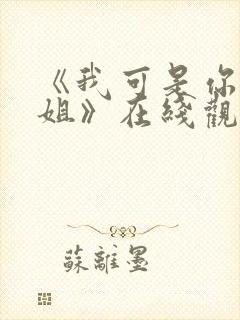 《我可是你
姐》在綫觀
蘇離墨